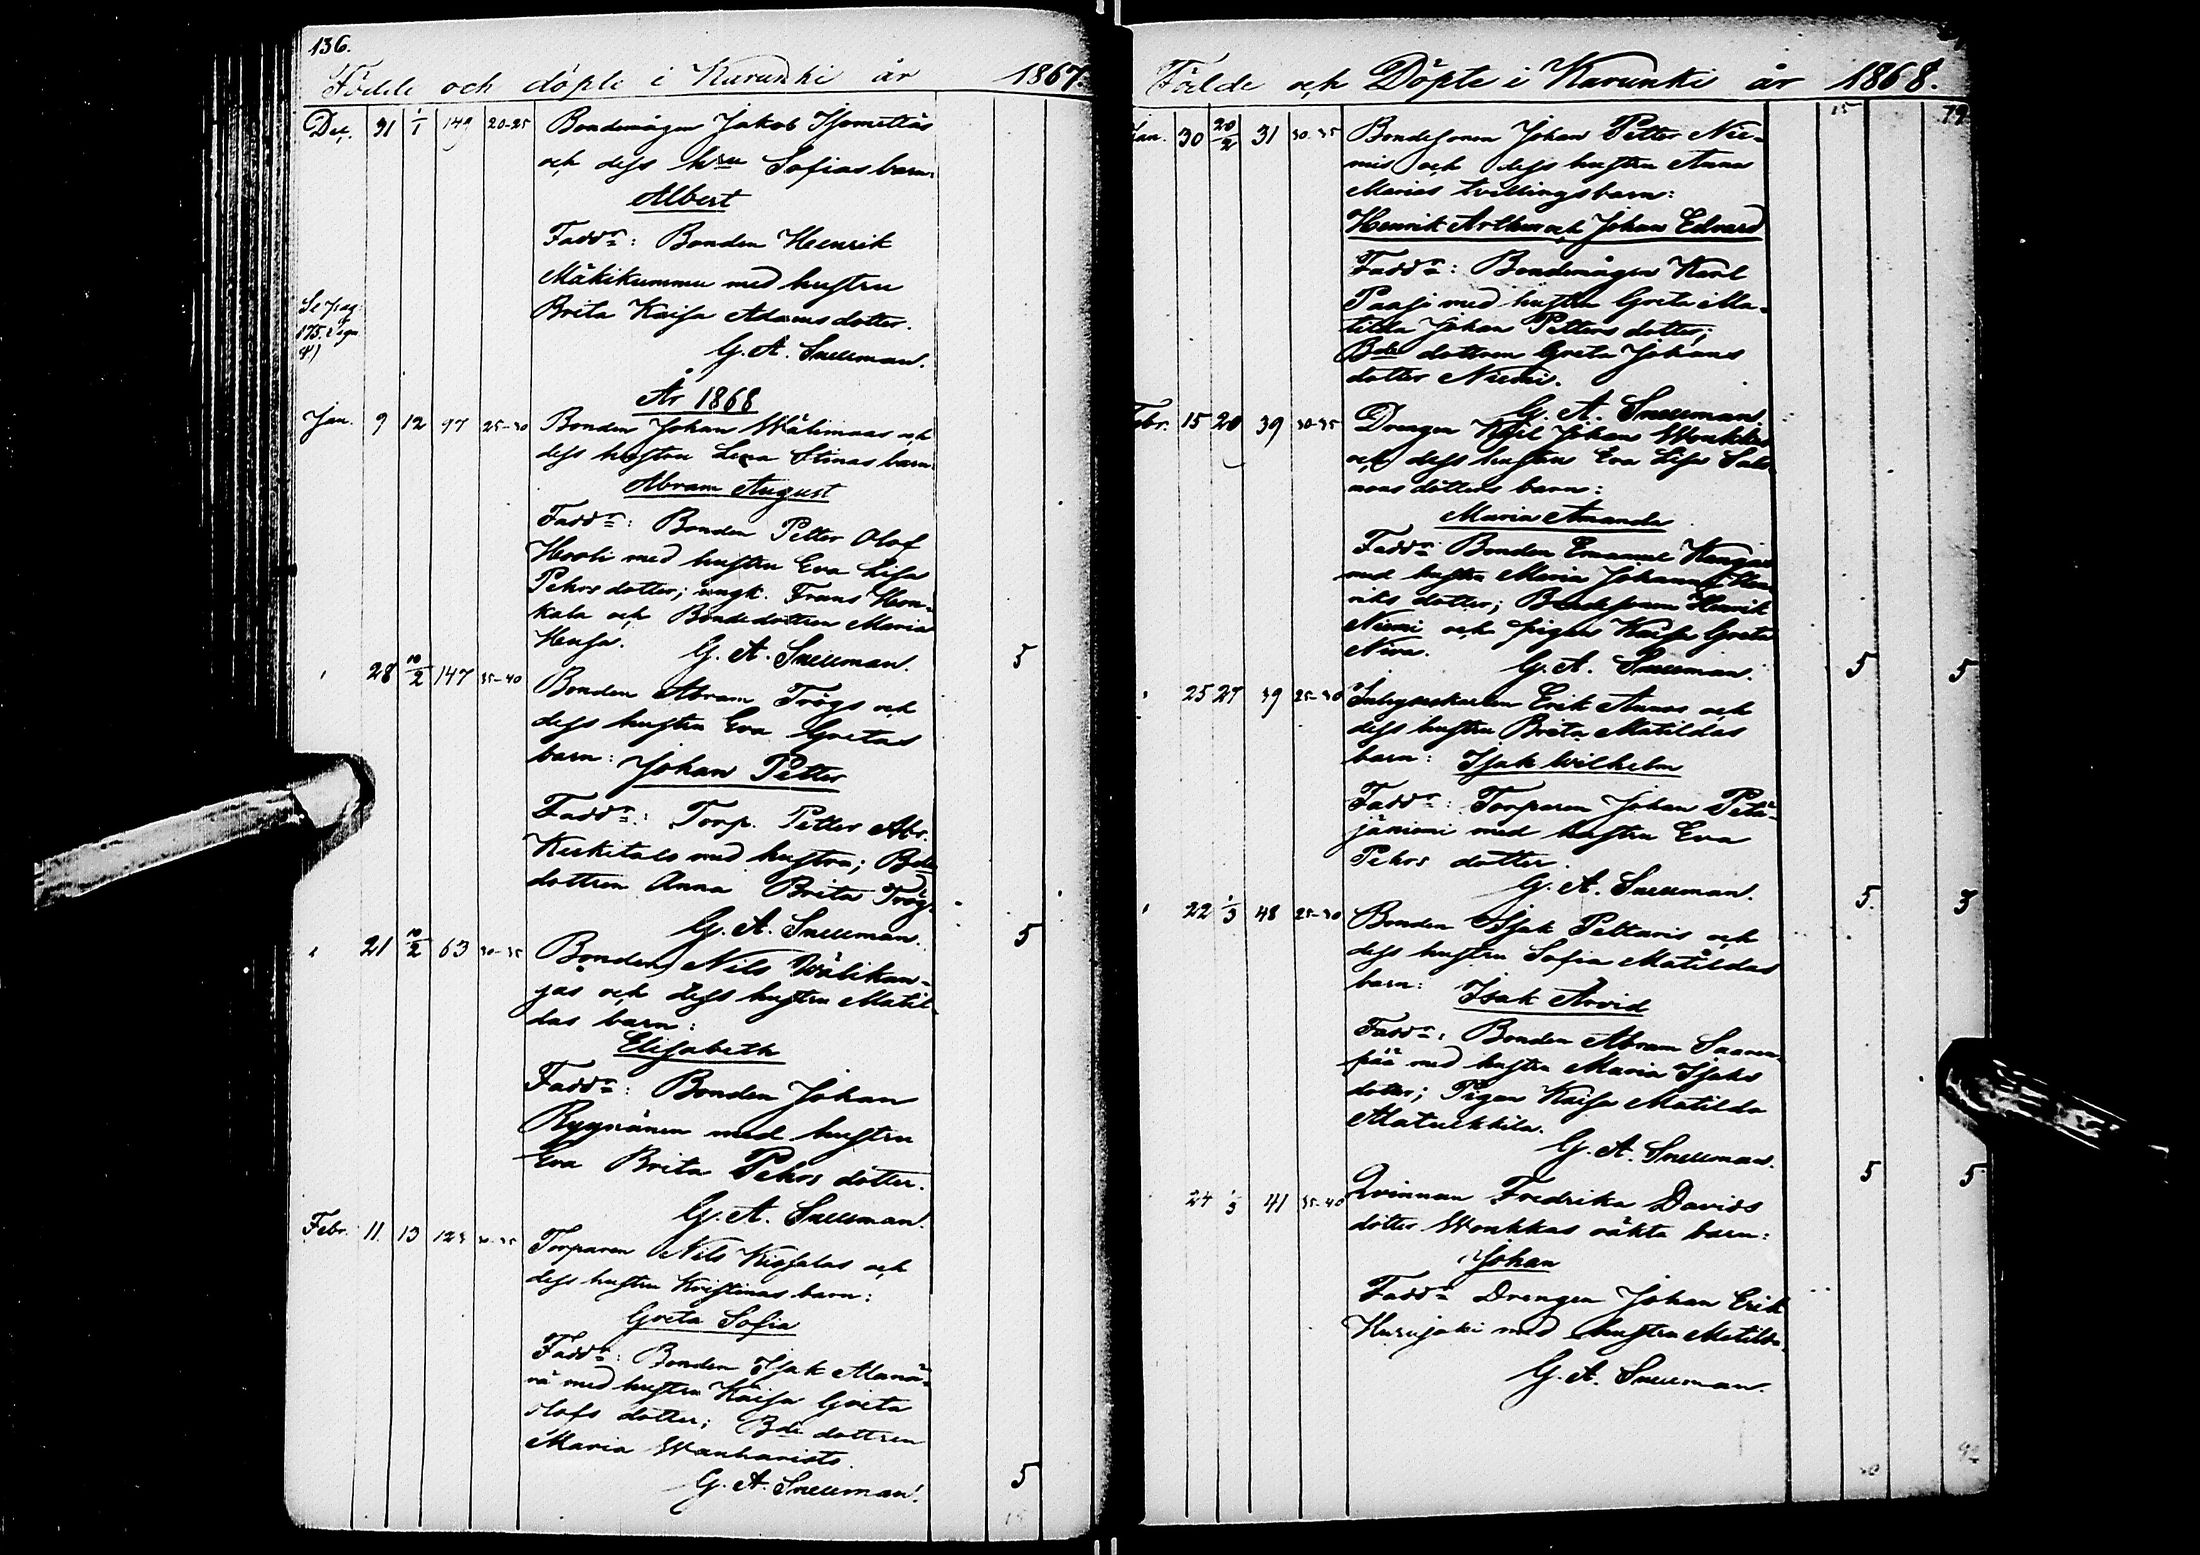 136.
Födde och döpte i Karunki år 1867.
Dec. 31 1/1 149 20-25 Bondemågen Jakob Isomettäs
och dess hru Sofias barn:
Albert
Faddr: Bonden Henrik
Mäkikummu med hustru
Brita Kaisa Adams dotter.
Se pag.
175.
G. A. Snellman.
År 1868
Jan. 9 12 97 25-30 Bonden Johan Wälimaas och
dess hustru Lena Stinas barn
Abram August
Faddr: Bonden Petter Olof
Hooli med hustru Eva Lisa
Pehrs dotter; ungk. Frans Hon-
kala och Bondedottren Maria
G. A. Snellman. 5
28 10/2 147 35-40 Bonden Abram Frögs och
dess hustru Eva Gretas
barn: Johan Petter
Faddr: Torp. Petter Abr.
Keskitalo med hustru; Bde
dottren Anna Brita Frög.
G. A. Snellman. 5
21 10/2 63 30-35 Bonden Nils Wälikan-
jas och dess hustru Matil-
das barn:
Elisabeth
Faddr: Bonden Johan
Ryynänen med hustru
Eva Brita Pehrs dotter.
G. A. Snellman.
Febr. 11. 13 30-35 Torparen Nils och
dess hustru Kristinas barn:
Greta Sofia
Faddr: Bonden Isak Alanä-
rä med hustru Kaisa Greta
Olofs dotter; Bde dottren
Maria
G. A. Snellman. 5
15
Födde och Döpte i Karunki år 1868.
15 79
Jan. 30 20/2 31 30-35 Bondesonen Johan Petter Nie-
mis och dess hustru Anna
Marias tvillingsbarn:
Henrik Arthur och Johan Edvard
Faddr: Bondemågen Karl
Paasi med hustru Greta Ma-
tilda Johan Petters dotter;
Bde dottren Greta Johans
dotter Niemi.
G. A. Snellman.
Febr. 15 20 39 30-35 Drengen Johan
och dess hustrus Eva Lisa Salo-
mons dotters barn:
Maria Amanda
Faddr: Bonden Emanuel Kangas
med hustru Maria Johanna Hen-
riks dotter; Bondesonen Henrik
Niemi och pigan Kaisa Greta
Niva.
G. A. Snellman. 5 5
25 27 39 25-30 Inhyseskarlen Erik Annas och
dess hustru Brita Matildas
barn: Isak Wilhelm
Faddr: Torparen Johan Petä-
jäniemi med hustru Eva
Pehrs dotter.
G. A. Snellman. 5. 3
22 1/3 48 25-30 Bonden Isak Peltaris och
dess hustru Sofia Matildas
barn: Isak Arvid
Faddr: Bonden Abram Saaren-
pää med hustru Maria Isaks
dotter; Pigan Kaisa Matilda
G. A. Snellman. 5 5
24 1/3 41 35-40 Qvinnan Fredrika Davids
dotter Wonkkas oäkta barn:
Johan
Faddr Drengen Johan Erik
med hustru Matilda.
G. A. Snellman.